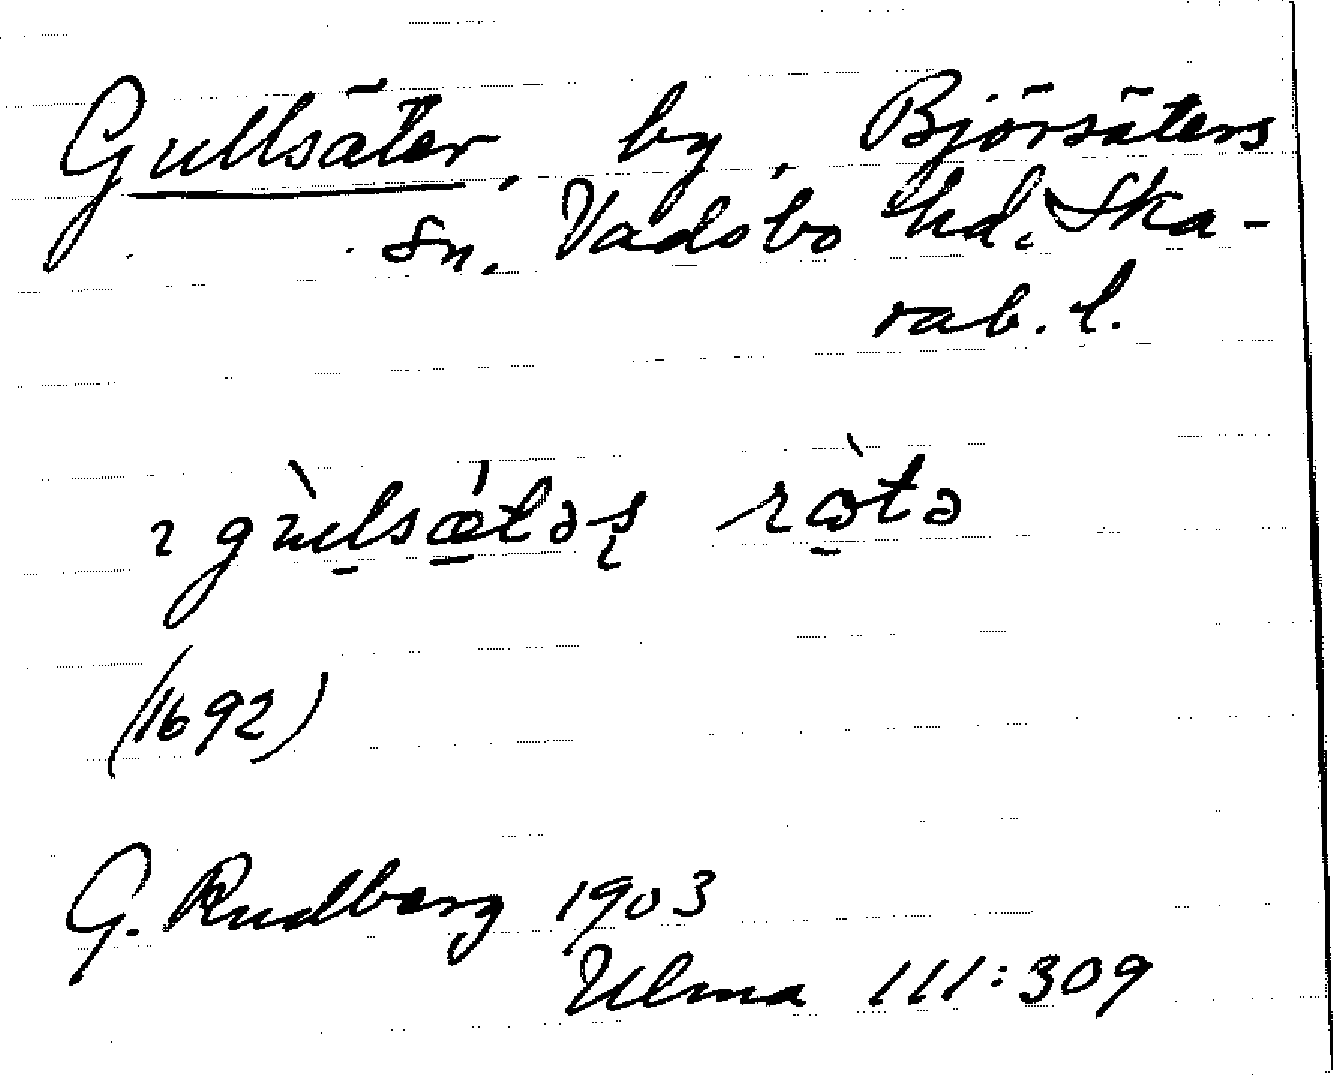 Gullsäter, by, Björsäters
sn. Vadsbo hd. Ska-
rab. l.
ɿ gùlsǽtəʂ rɷ̀tə
(1692)
G. Rudberg 1903
Ulma 111:309